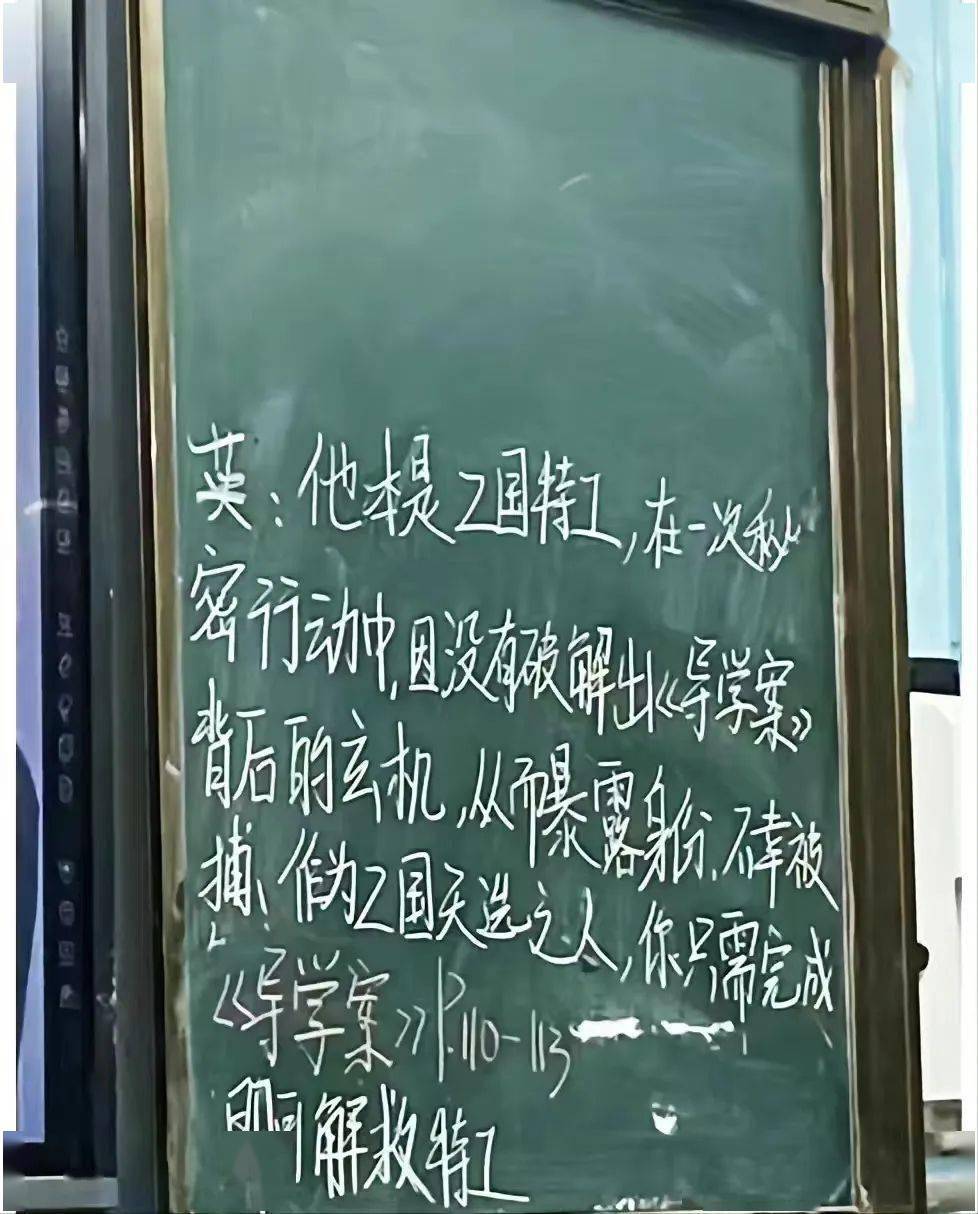 英：他本是Z国特工，在一次秘
密行动中，因没有破解出《导学案》
背后的玄机，从而暴露身份，不幸被
捕、作为Z国天选之人，你只需完成
《导学案》P.110-113
即可解救特工